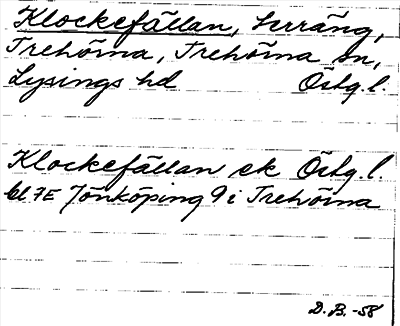 Klockefällan, terräng,
Trehörna, Trehörna sn,
Lysings hd Östg.l.
Klockefällan ek Östg.l.
bl 7E Jönköping 9 i Trehörna
D.B.-58